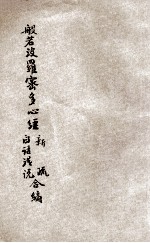 般若波羅密多心經
新疏
白話淺說
合編